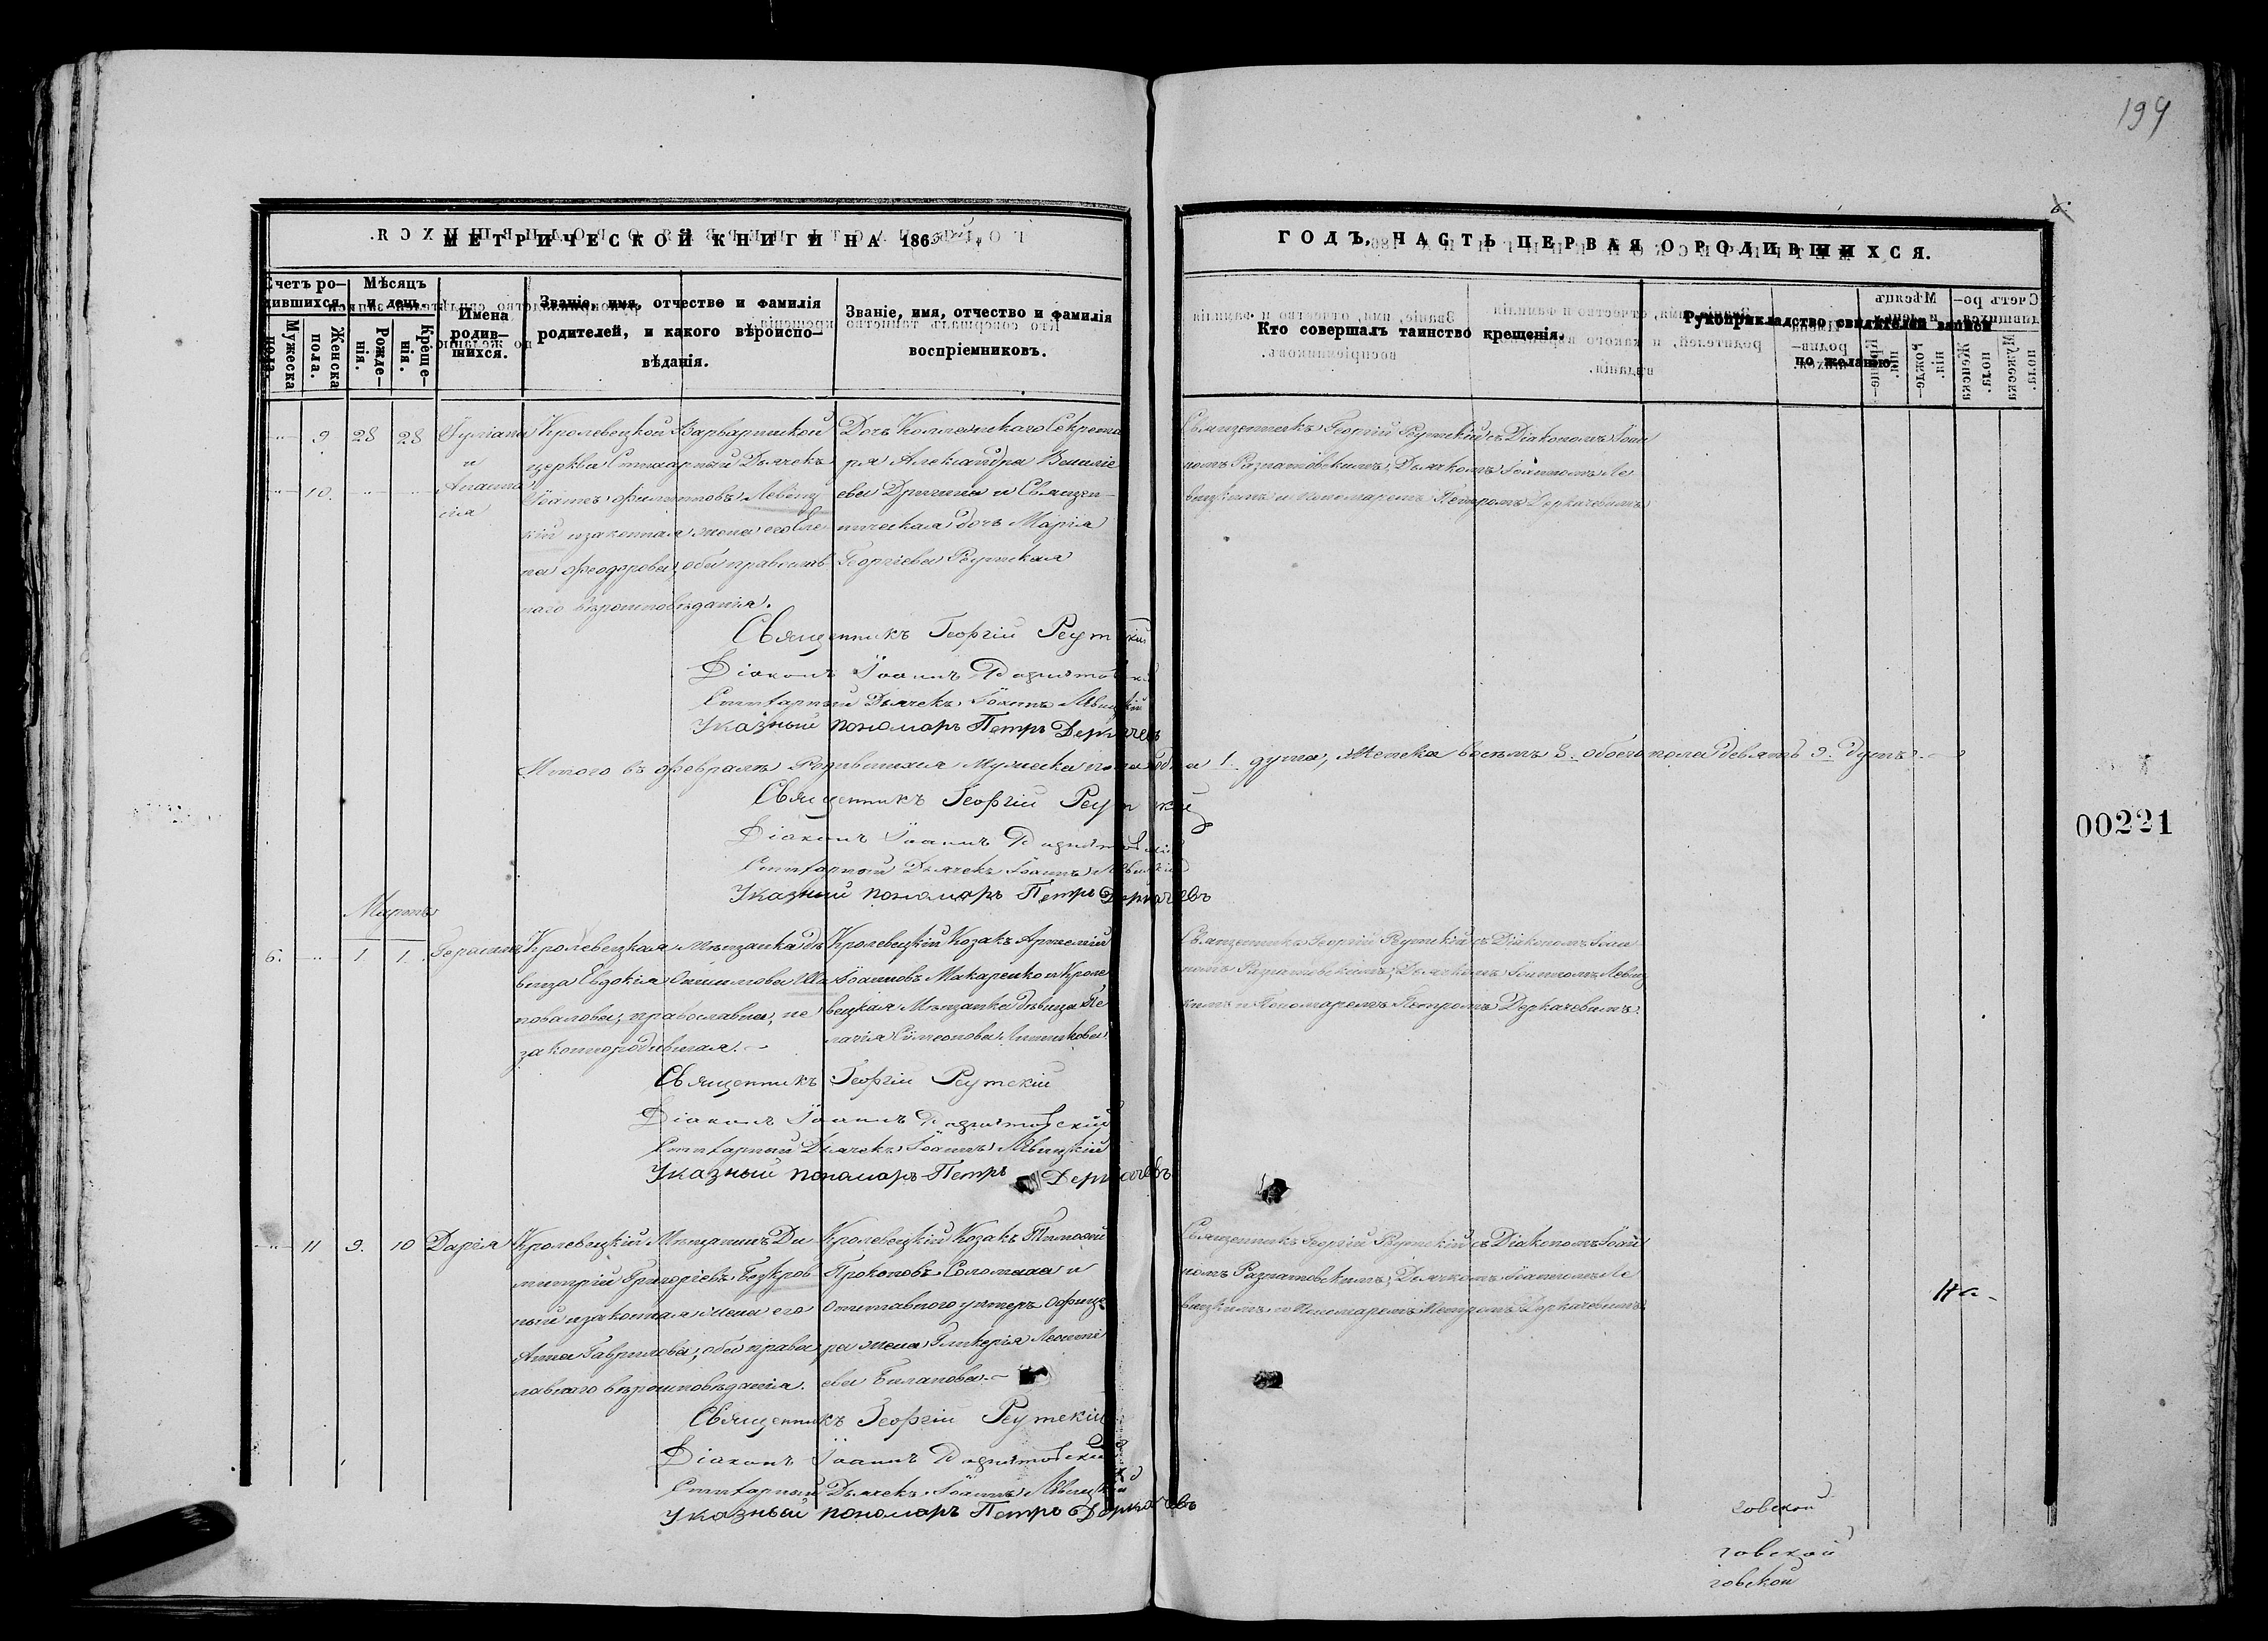 199
МЕТРИЧЕСКОЙ КНИГИ НА 186
ГОДЪ, ЧАСТЬ ПЕРВАЯ О РОДИВШИХСЯ.
Счетъ ро-
дившихся.
Мужеска
пола.
Женска
пола.
Мѣсяцъ
и день.
Рожде-
нія.
Креще-
нія.
Имена
родив-
шихся.
Званіе, имя, отчество и фамилія
родителей, и какого вѣроиспо-
вѣданія.
Званіе, имя, отчество и фамилія
воспріемниковъ.
Кто совершалъ таинство крещенія.
Рукоприкладство свидѣтелей записи
по желанію.
9. 28 28
10.
и
Кролевецкой Варваринской
церкви Стихарный Дьячекъ
Іоаннъ Филипповъ Левиц
кій и законная жена его Еле
на Феодорова, оба православ
наго вѣроисповѣданія.
Дочь Коллежскаго Секрета
ря Александра Василіе
ва и Священ-
ническая дочь Марія
Георгіева Реутская
Священникъ Георгій Реутскій съ Діакономъ Іоан
номъ Разнатовскимъ, Дьячкомъ Іоанномъ Ле
вицкимъ и Пономаремъ Петромъ Деркачевымъ
Священникъ Георгій Реутскій
Діаконъ Іоаннъ Разнатовскій
Стихарный Дьячекъ Іоаннъ Левицкій
Указный пономарь Петръ Деркачевъ
Итого въ Февралѣ родившихся Мужеска пола одна 1. душа, Женска восемь 8. обоего пола девять 9. душъ.
Священникъ Георгій Реутскій
Діаконъ Іоаннъ Разнатовскій
Стихарный Дьячекъ Іоаннъ Левицкій
Указный пономарь Петръ Деркачевъ
00221
Мартъ
6. 1 1. Герасимъ
Кролевецкая Мѣщанка дѣ
вица Евдокія
повалова, православна, не
законнородившая.
Кролевецкій Козакъ Артемій
Іоанновъ Макаренко и Кроле
вецкая Мѣщанка дѣвица Пе
лагія Симеонова
Священникъ Георгій Реутскій съ Діакономъ Іоан
номъ Разнатовскимъ, Дьячкомъ Іоанномъ Левиц
кимъ и Пономаремъ Петромъ Деркачевымъ.
Священникъ Георгій Реутскій
Діаконъ Іоаннъ Разнатовскій
Стихарный Дьячекъ Іоаннъ Левицкій
Указный пономарь Петръ Деркачевъ
11 9. 10 Дарія
Кролевецкій Мѣщанинъ Ди
митрій Григоріевъ Безкров
ный и законная жена его
Анна Гаврилова, оба правос
лавнаго вѣроисповѣданія.
Кролевецкій Козакъ Тимофей
Прокоповъ Соломаха и
Отставного унтеръ Офице
ра жена Гликерія Леонті
ева Биланова.
Священникъ Георгій Реутскій съ Діакономъ Іоан
номъ Разнатовскимъ, Дьячкомъ Іоанномъ Ле
вицкимъ и Пономаремъ Петромъ Деркачевымъ
На-
Священникъ Георгій Реутскій
Діаконъ Іоаннъ Разнатовскій
Стихарный Дьячекъ Іоаннъ Левицкій
Указный пономарь Петръ Деркачевъ
говской
говской